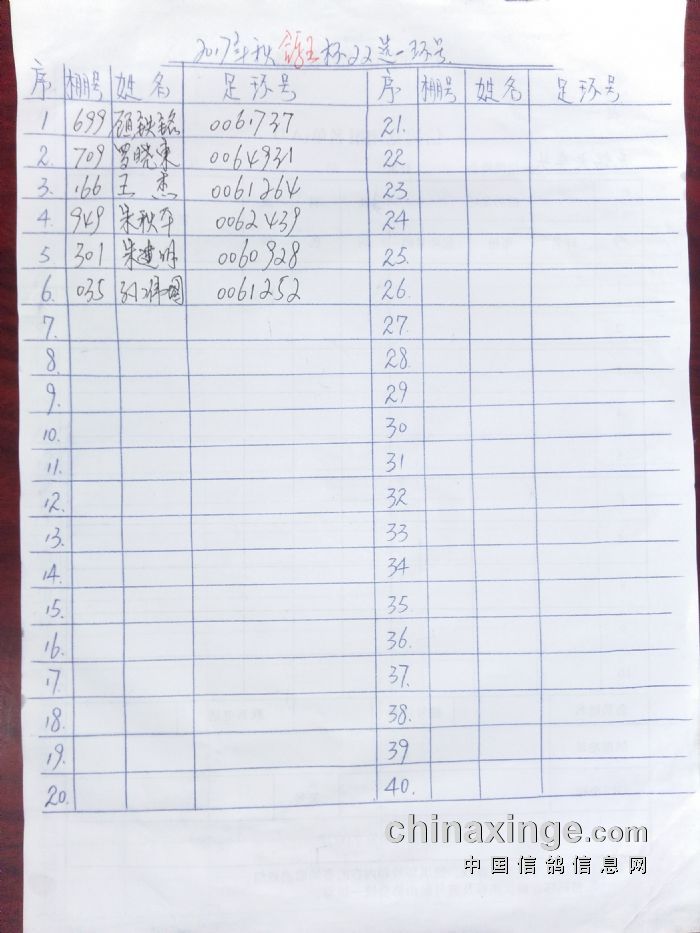 2017年秋鸽王杯22选一环号
序 棚号 姓名 足环号 序 棚号 姓名 足环号
1 699 顾铁铭 0061737 21.
2. 709 罗晓东 0064931 22
3. 166 王杰 0061264 23
4. 949 朱秋华 0062439 24
5 301 朱建明 0060928 25.
6. 035 0061252 26.
7. 27.
8. 28.
9. 29
10. 30
11. 31
12. 32
13. 33
14. 34
15. 35
16. 36.
17. 37.
18. 38.
19. 39
20. 40.
chinaxinge.com
中国信鸽信息网